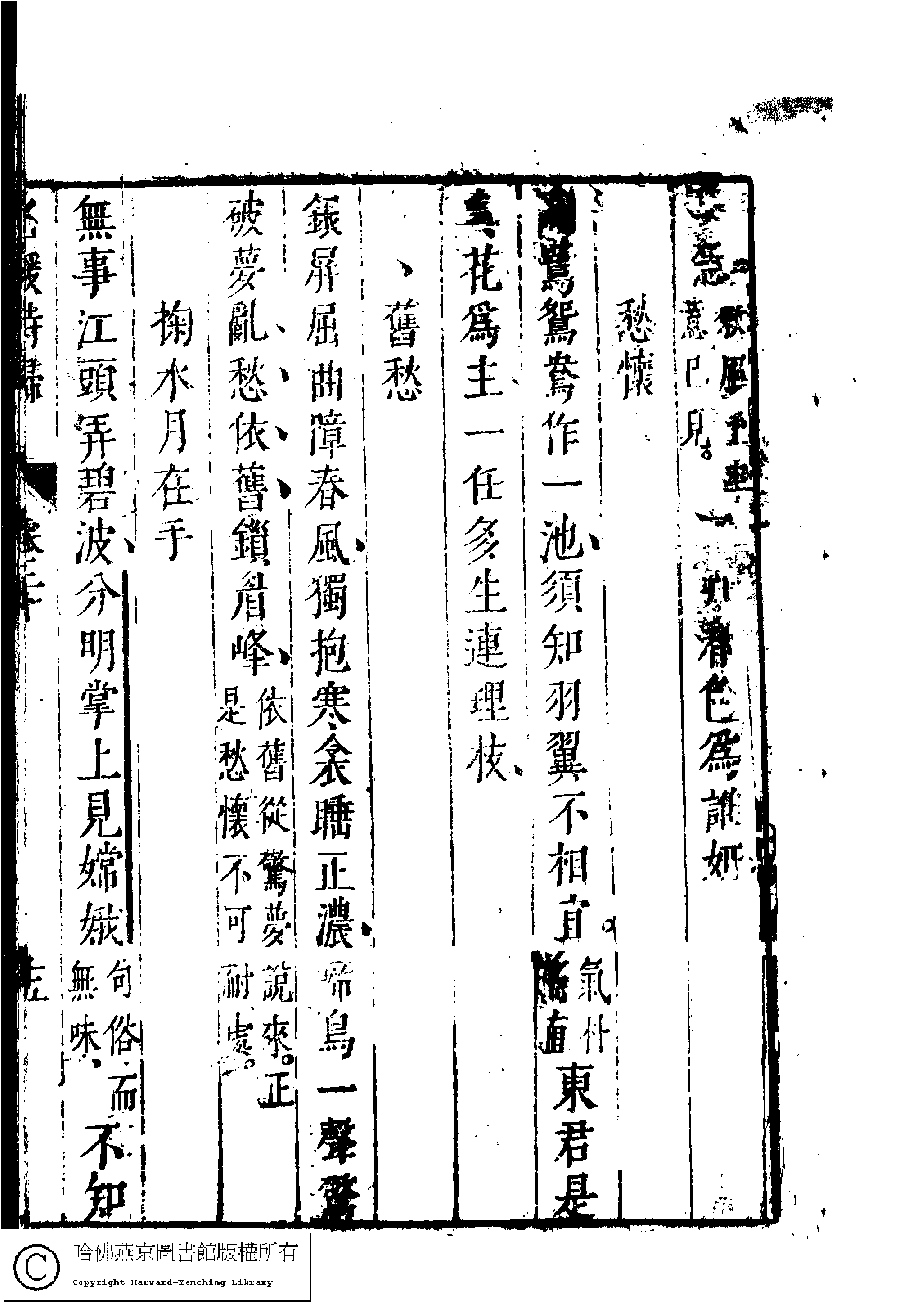 愁 意已見。春色為誰妍
愁懷
鷺鴛鴦作一池、須知羽翼不相宜。氣朴直東君是
花為主一任多生連理枝、
舊愁
銀屏屈曲障春風、獨抱寒衾睡正濃、啼鳥一聲驚
破夢亂愁依舊鎖眉峰、依舊從驚夢說來。正是愁懷不可耐處。
掬水月在手
無事江頭弄碧波、分明掌上見嫦娥句俗、而無味、不知
名媛詩歸 卷二十
哈佛燕京圖書館版權所有
Copyright Harvard-Yenching Library